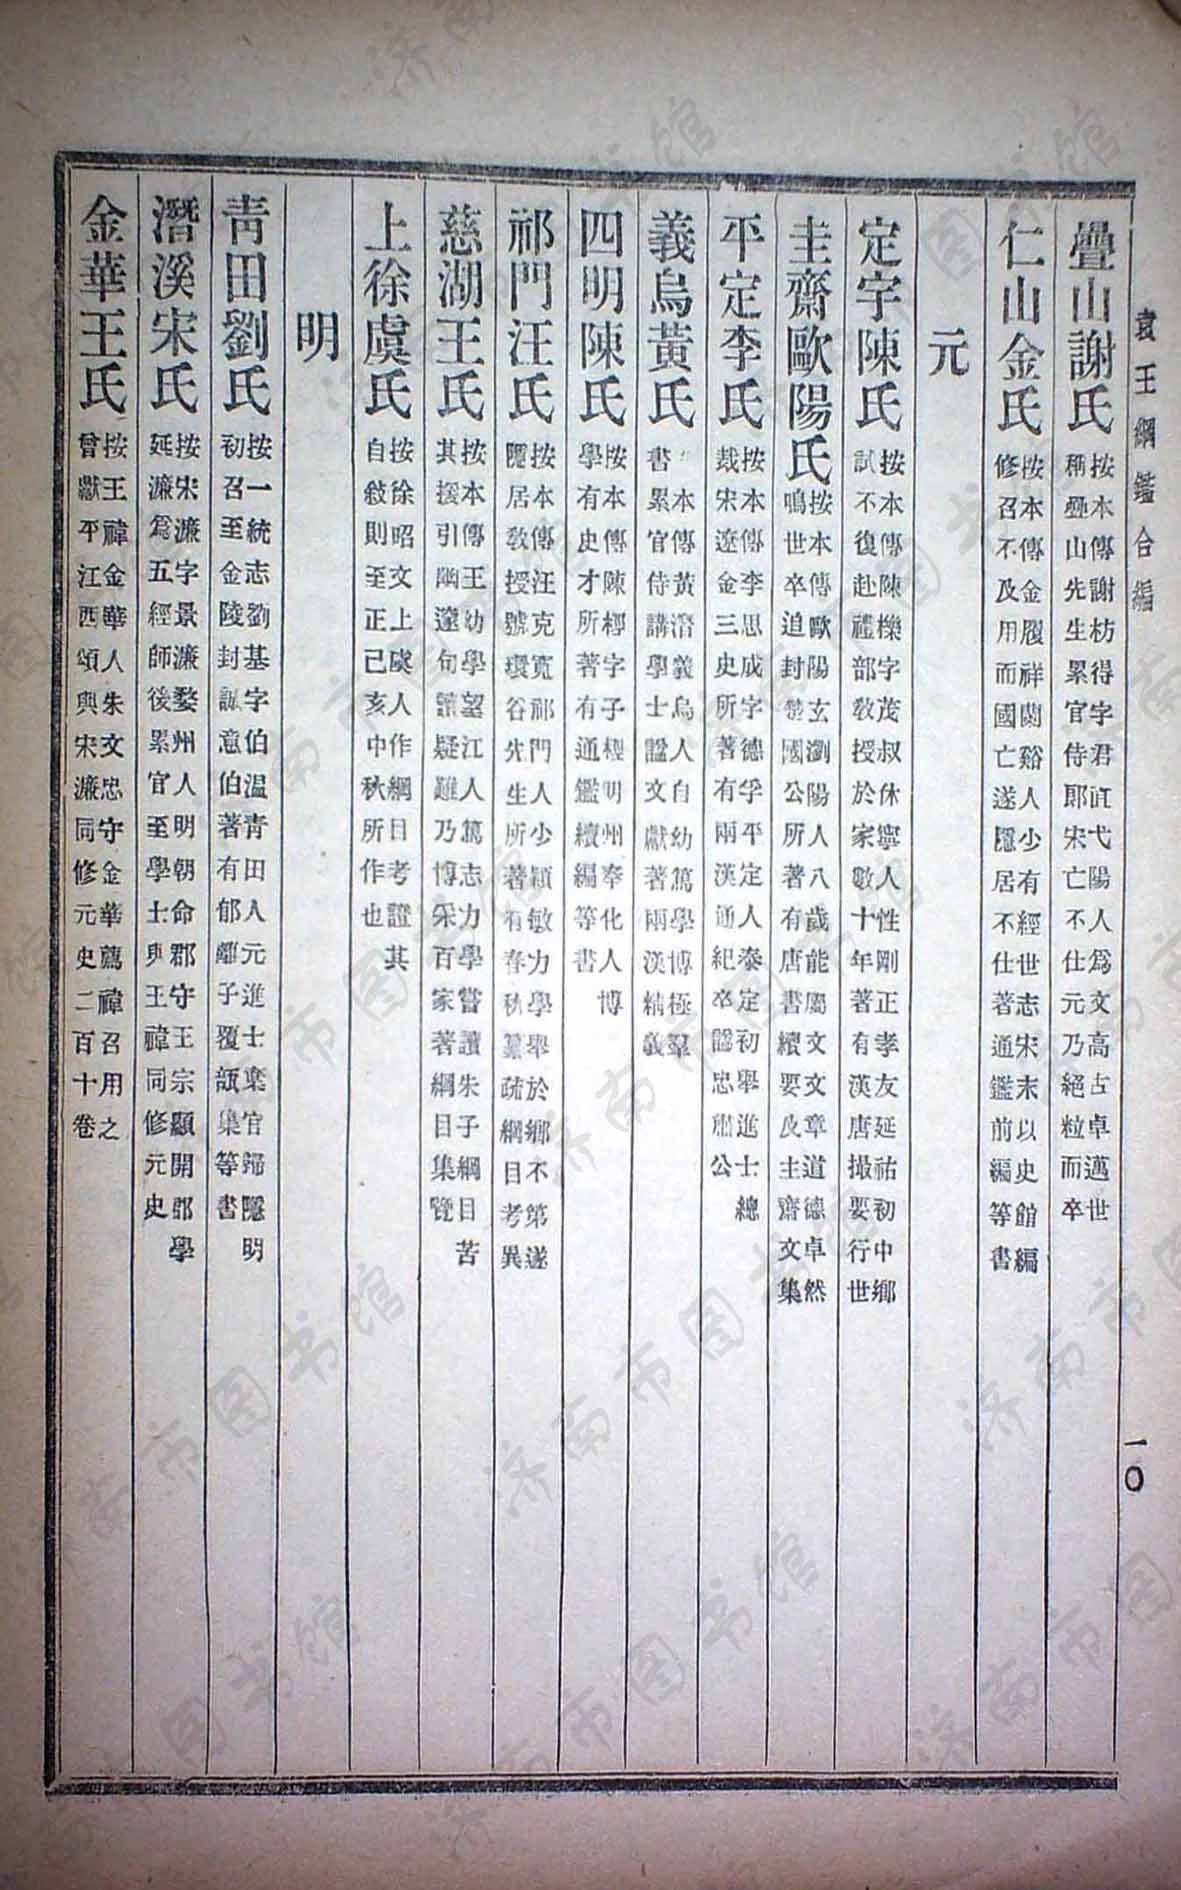 袁王綱鑑合編
一〇
疊山謝氏
按本傳謝枋得字君直弋陽人爲文高古卓邁世
稱疊山先生累官侍郎宋亡不仕元乃絕粒而卒
仁山金氏
按本傳金履祥蘭谿人少有經世志宋末以史館編
修召不及用而國亡遂隱居不仕著通鑑前編等書
元
定宇陳氏
按本傳陳櫟字茂叔休寧人性剛正孝友延祐初中鄉
試不復赴禮部敎授於家數十年著有漢唐撮要行世
圭齋歐陽氏
按本傳歐陽玄瀏陽人八歲能屬文文章道德卓然
鳴世卒追封楚國公所著有唐書纘要及主齋文集
平定李氏
按本傳李思成字德孚平定人泰定初舉進士總
裁宋遼金三史所著有兩漢通紀卒諡忠肅公
義烏黃氏
本傳黃溍義烏人自幼篤學博極羣
書累官侍講學士諡文獻著兩漢精義
四明陳氏
按本傳陳桱字子桱明州奉化人博
學有史才所著有通鑑續編等書
祁門汪氏
按本傳汪克寬祁門人少穎敏力學舉於鄉不第遂
隱居敎授號環谷先生所著有春秋纂疏綱目考異
慈湖王氏
按本傳王幼學望江人篤志力學嘗讀朱子綱目苦
其援引幽邃句讀疑難乃博采百家著綱目集覽
上徐虞氏
按徐昭文上虞人作綱目考證其
自敍則至正己亥中秋所作也
明
靑田劉氏
按一統志劉基字伯溫靑田人元進士棄官歸隱明
初召至金陵封誠意伯著有郁離子覆瓿集等書
潛溪宋氏
按宋濂字景濂婺州人明朝命郡守王宗顯開郡學
延濂爲五經師後累官至學士與王禕同修元史
金華王氏
按王禕金華人朱文忠守金華薦禕召用之
曾獻平江西頌與宋濂同修元史二百十卷
济南市图书馆